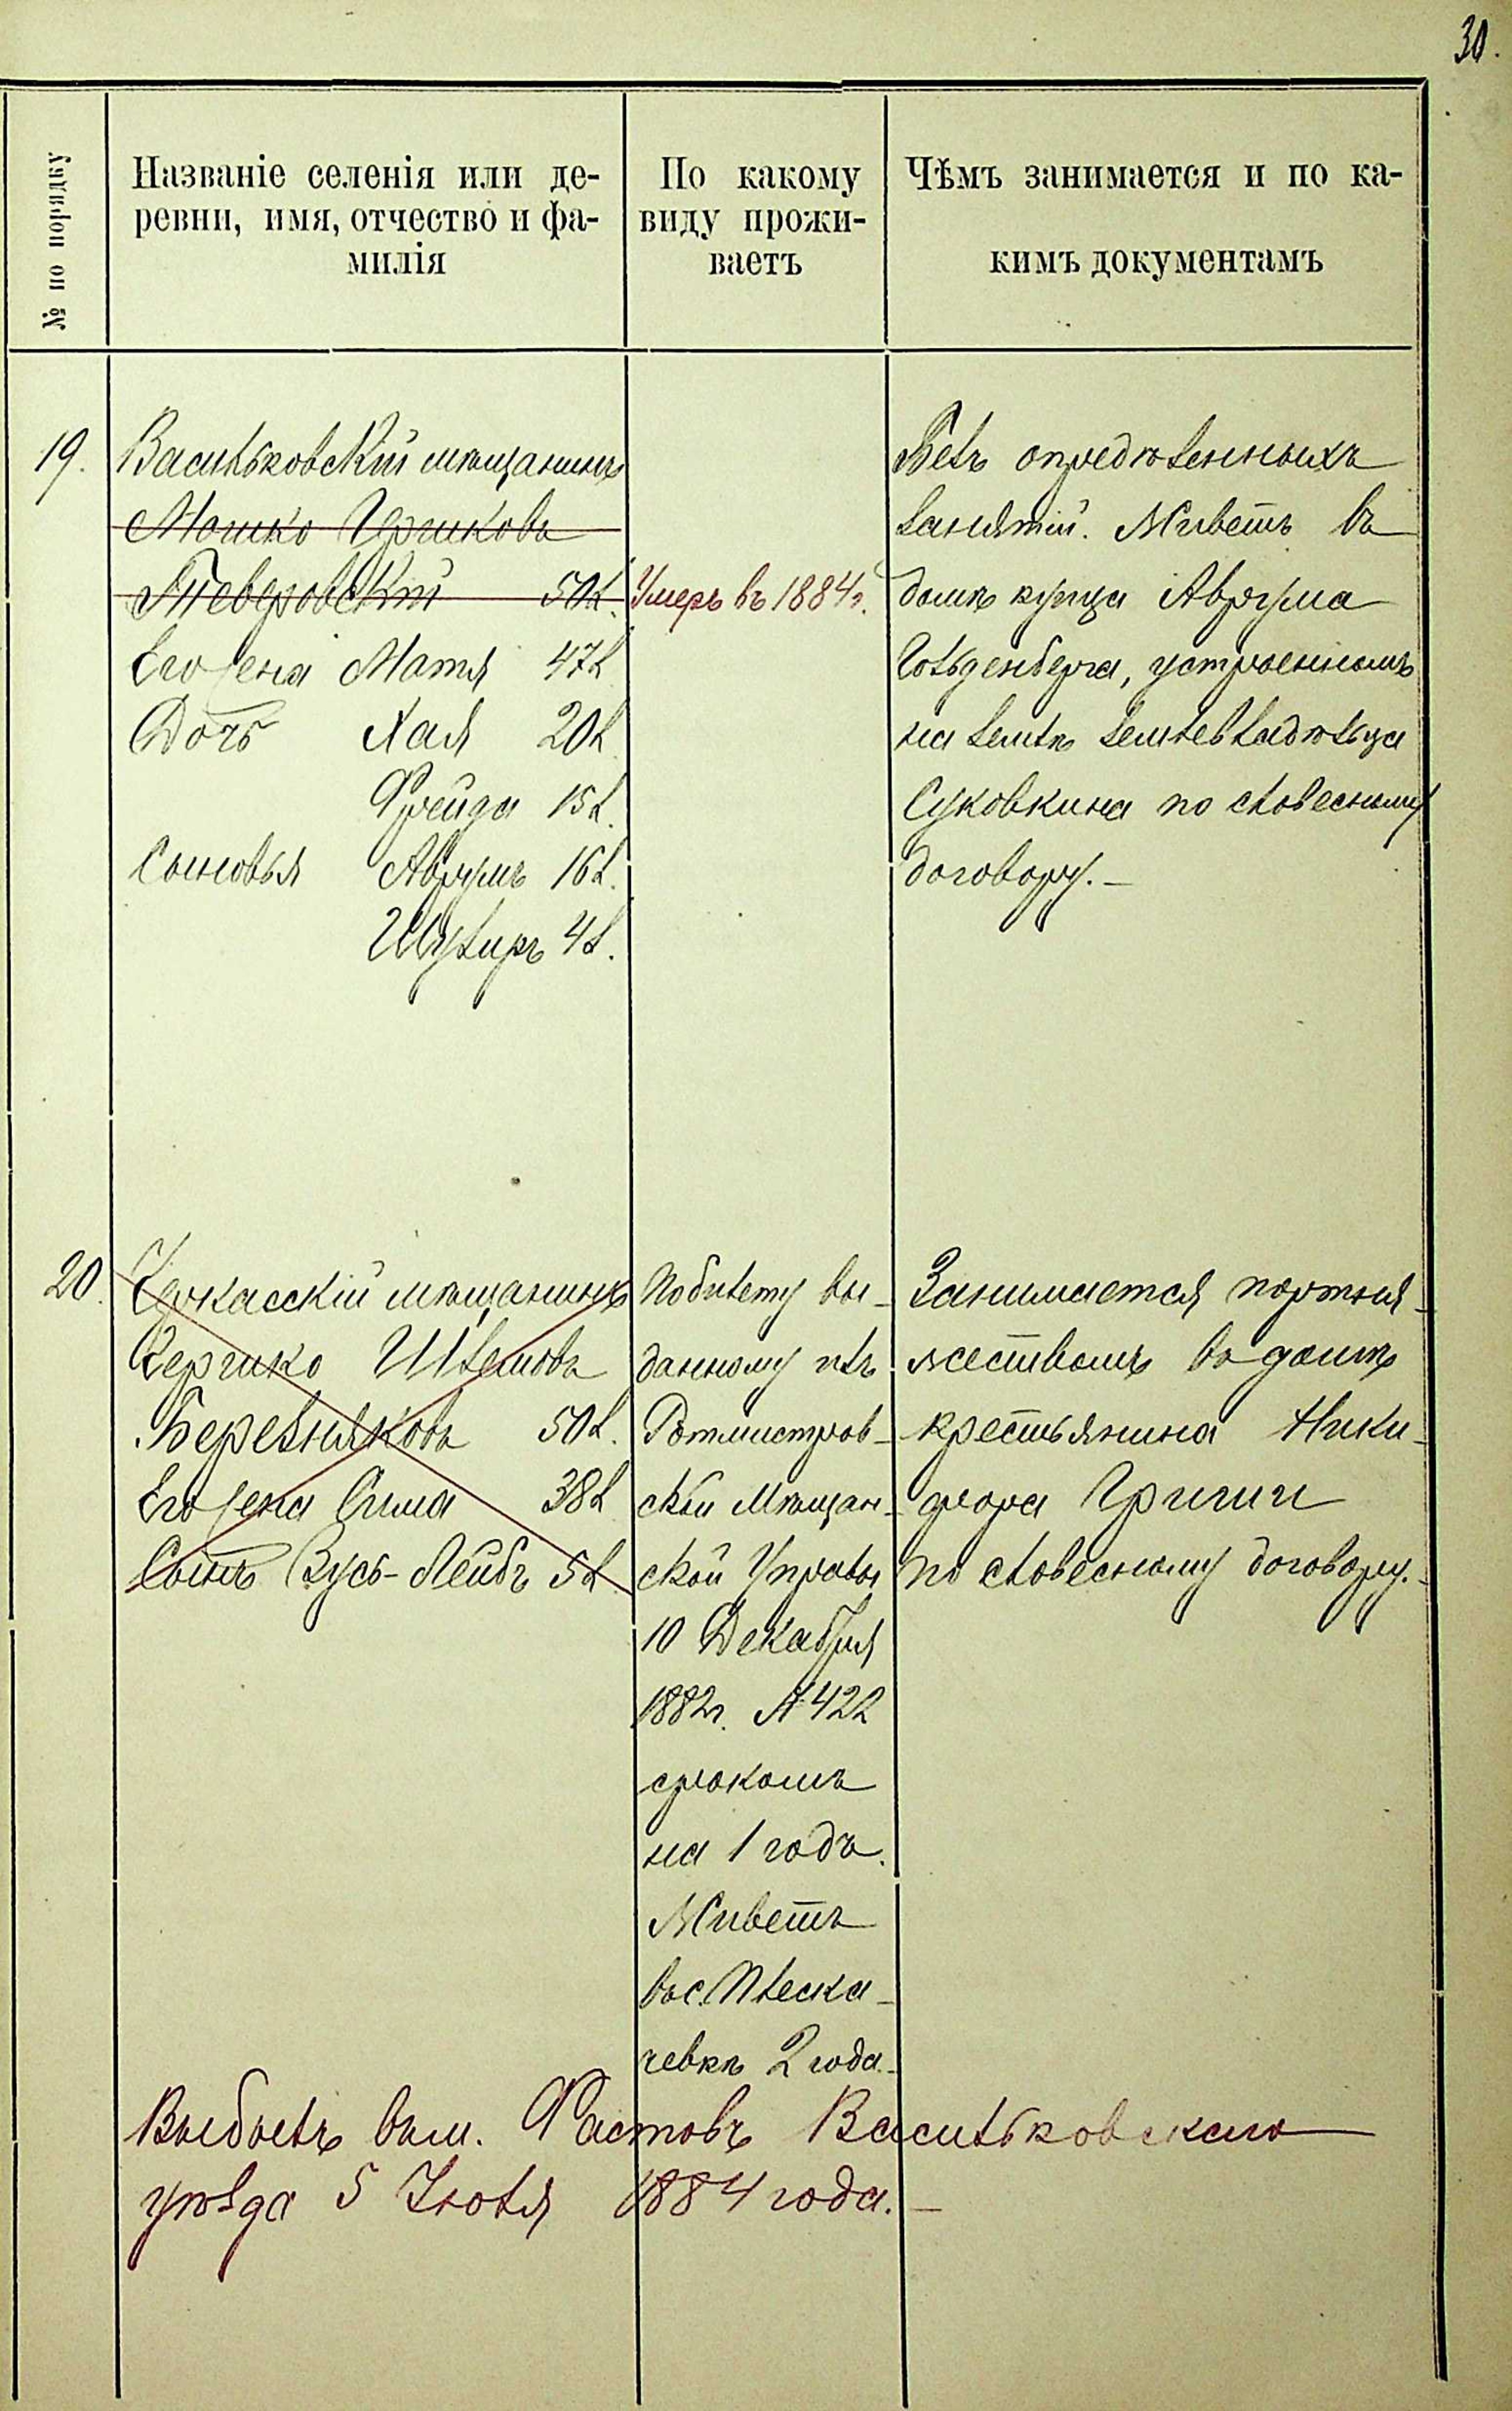 30.
№ по порядку
Названіе селенія или де-
ревни, имя, отчество и фа-
милія
По какому
виду прожи-
ваетъ
Чѣмъ занимается и по ка-
кимъ документамъ
19.
Васильковскій мѣщанинъ
Мошко Ицриковъ
Тверовскій 50 л.
Умеръ въ 1884 г.
Его жена Матя 47 л
Дочь Хая 20 л
Фрейда 15 л.
Сыновья Аврумъ 16 л.
Шулиръ 4 л.
Безъ опредѣленныхъ
занятій. Живетъ въ
домѣ купца Аврума
Гольденберга, устроенномъ
на землѣ землевладѣльца
Суковкина по словесному
договору. —
20.
Черкасскій мѣщанинъ
Бершко Шлемовъ
Березняковъ 50 л.
Его жена Сима 38 л
Сынъ Зусь-Лейбъ 5 л
По билету вы-
данному изъ
Ротмистров-
ской Мѣщан-
ской Управы
10 Декабря
1882 г. № 422
срокомъ
на 1 годъ.
Живетъ
въ с. Плеска-
чевкѣ 2 года. —
Занимается портня-
жествомъ въ домѣ
крестьянина Ники-
фора
по словесному договору. -
Выбылъ въ м. Фастовъ Васильковскаго
уѣзда 5 Іюля 1884 года. —